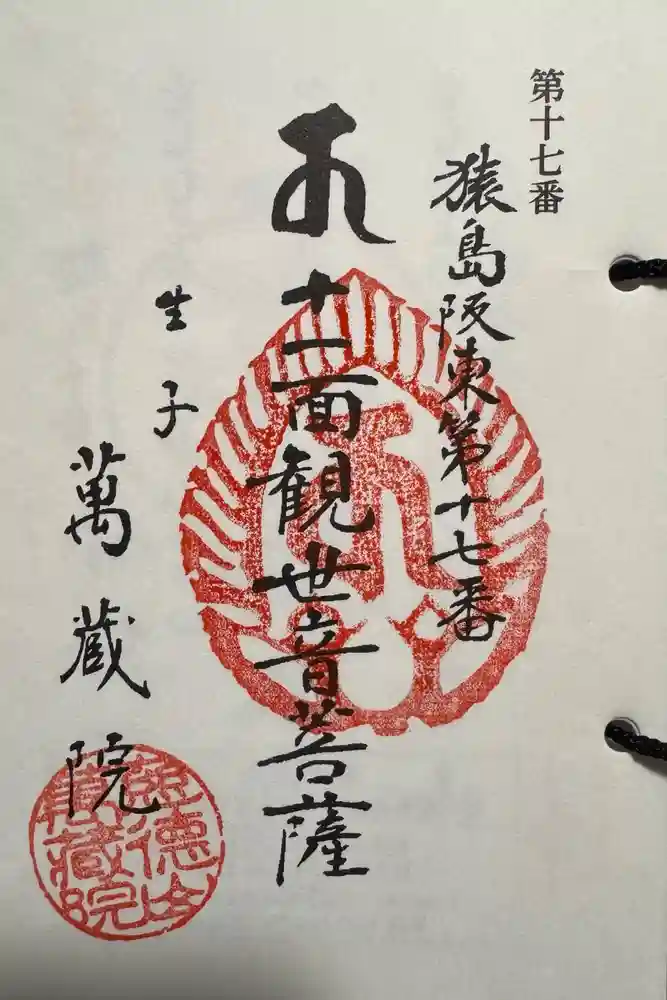 第十七番
猿島阪東第十七番
十一面観世音菩薩
生子
萬蔵院
萬蔵院